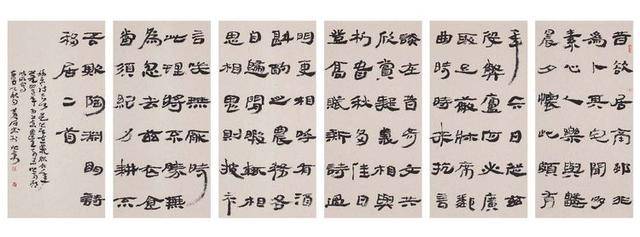 昔欲居南邨非
為卜其宅聞多
素心人樂與數
晨夕懷此頗有
年今日從茲
役弊廬何必廣
取足蔽床席鄰
曲時時來抗言
談在昔奇文共
欣賞疑義相與
析春秋多佳日
登高賦新詩過
門更相呼有酒
斟酌之農務各
自歸閒暇輒相
思相思則披衣
言笑無厭時
此理將不勝無
為忽去茲衣食
當須紀力耕不
吾欺陶淵明詩
移居二首